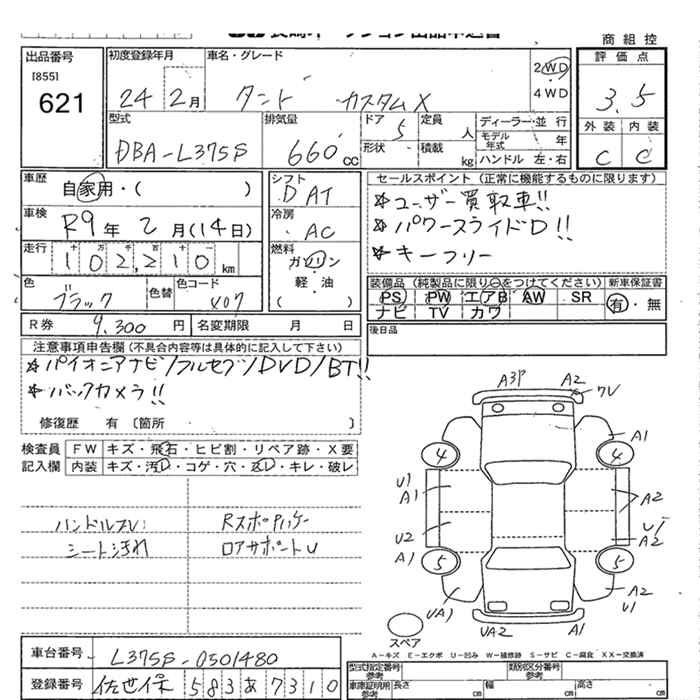 商 組 控
出品番号 初度登録年月 車名・グレード 評 価 点
[855]
621
24 2月 タント カスタムX 2WD
4WD
3.5
型式 排気量 ドア 5 定員 人 ディーラー・並 行
モデル年式 年
外 装 内 装
DBA-L375S 660cc 形状 積載 kg ハンドル 左・右
C C
車歴 自家用・( ) シフト セールスポイント (正常に機能するものに限ります)
D AT
☆ユーザー買取車!!
車検 R9年 2月(14日) 冷房 AC
☆パワースライドD!!
走行 102,210km 燃料 ガソリン
軽・油
( )
☆キーフリー
色 ブラック 色替 色コード X07
装備品 (純製品に限り○をつけてください) 新車保証書
PS PW エアB AW SR 有・無
ナビ TV カワ
R券 9,300 円 名変期限 月 日
後日品
注意事項申告欄 (不具合内容等は具体的に記入して下さい)
☆パイオニアナビ/フルセグ/DVD/BT!!
☆バックカメラ!!
修復歴 有 〔箇所 〕
検査員 FW キズ・飛石・ヒビ割・リペア跡・X要
記入欄 内装 キズ・汚レ・コゲ・穴・スレ・キレ・破レ
ハンドルスレ
シート汚れ
ロアサポートU
A3P A2 フU
A1
4 4
U1
A1
A2
U2
U1
A2
A1
5 5
UA1
A2
U1
UA2 A1
スペア
A-キズ E-エクボ U-凹み W-補修跡 S-サビ C-腐食 XX-交換済
車台番号 L375S-0501480
型式指定番号 参考 類別区分番号 参考
登録番号 佐世保 583あ7310
車庫証明用 参考 長さ cm 幅 cm 高さ cm